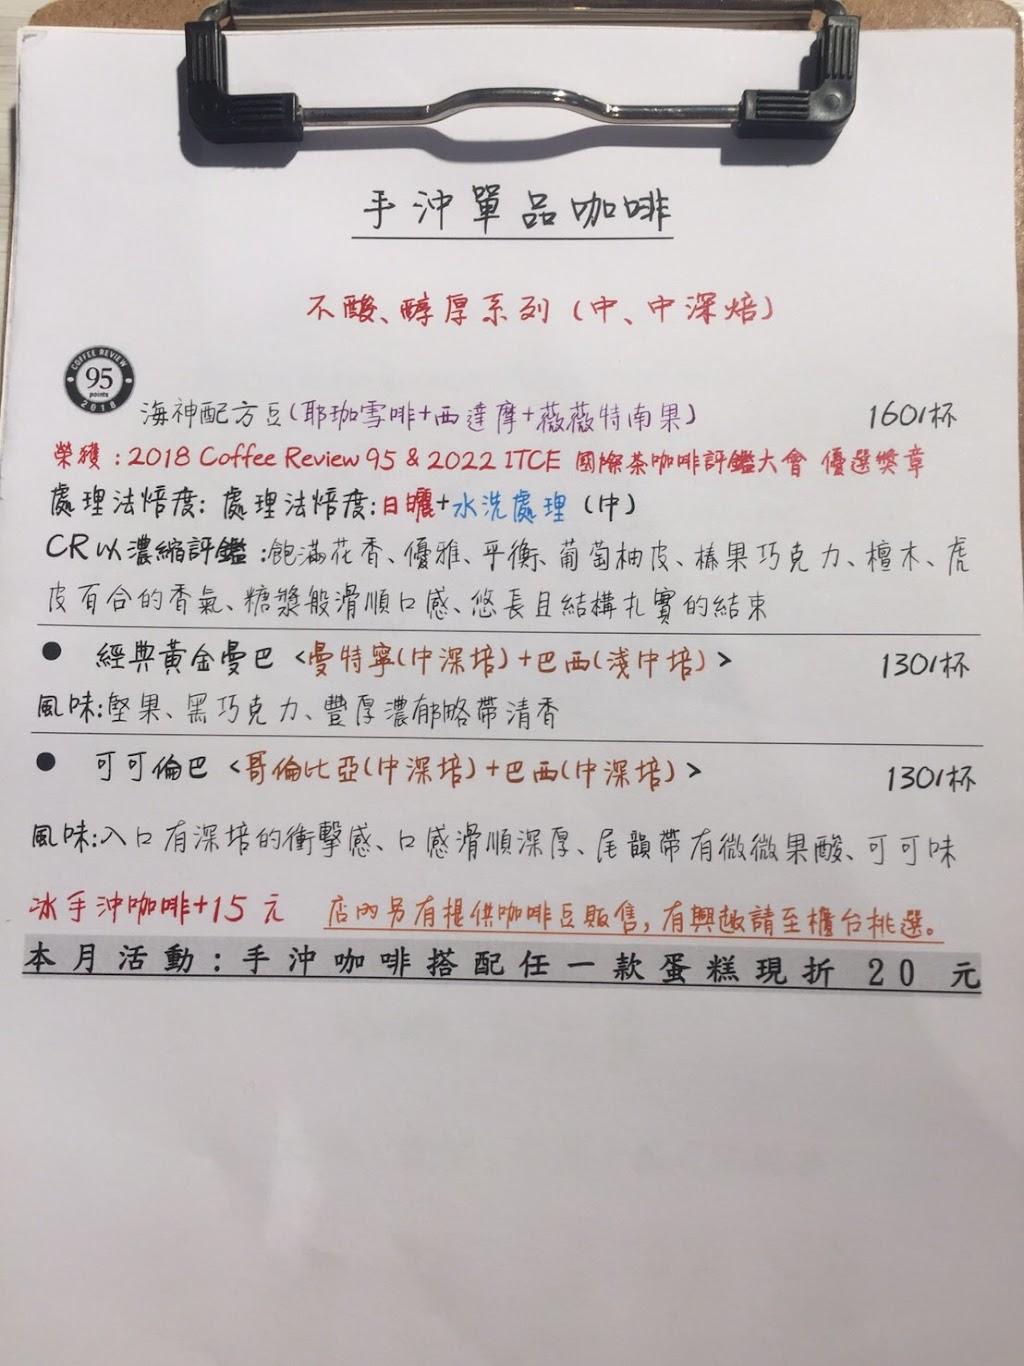 手沖單品咖啡
不酸、醇厚系列(中、中深焙)
COFFEE REVIEW
95
points
2018
海神配方豆(耶珈雪啡+西達摩+薇薇特南果) 160/杯
榮獲:2018 Coffee Review 95 & 2022 ITCF 國際茶咖啡評鑑大會 優選獎章
處理法焙度: 處理法焙度:日曬+水洗處理 (中)
CR以濃縮評鑑:飽滿花香、優雅、平衡、葡萄柚皮、榛果巧克力、檀木、虎
皮百合的香氣、糖漿般滑順口感、悠長且結構扎實的結束
● 經典黃金曼巴 <曼特寧(中深培)+巴西(淺中培)> 130/杯
風味:堅果、黑巧克力、豐厚濃郁略帶清香
● 可可倫巴 <哥倫比亞(中深培)+巴西(中深培)> 130/杯
風味:入口有深培的衝擊感、口感滑順深厚、尾韻帶有微微果酸、可可味
冰手沖咖啡+15元 店內另有提供咖啡豆販售,有興趣請至櫃台挑選。
本月活動:手沖咖啡搭配任一款蛋糕現折 20 元